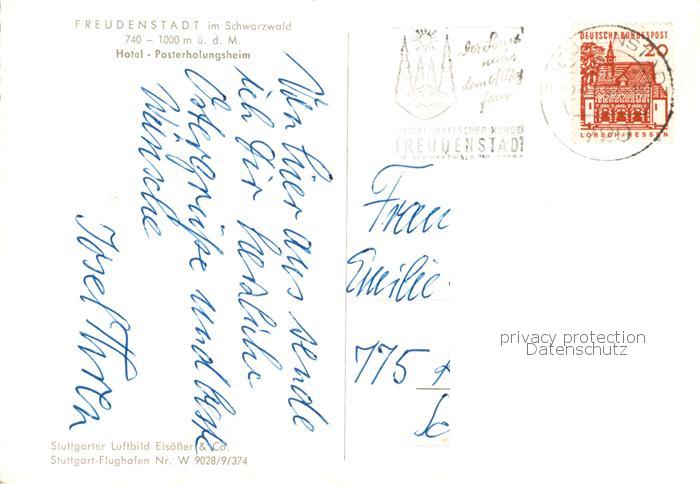 FREUDENSTADT im Schwarzwald
740 - 1000 m ü. d. M.
Hotel - Posterholungsheim
Von hier aus sende
ich Dir herzliche
Ostergrüße und beste
Wünsche
Josef
Stuttgarter Luftbild Elsößer & Co.
Stuttgart-Flughafen Nr. W 9028/9/374
der Sonne
nahe
dem Alltag
fern
HEILKLIMATISCHER KURORT
FREUDENSTADT
DEUTSCHE BUNDESPOST
20
LORSCH/HESSEN
Frau
Emilie
775
privacy protection
Datenschutz